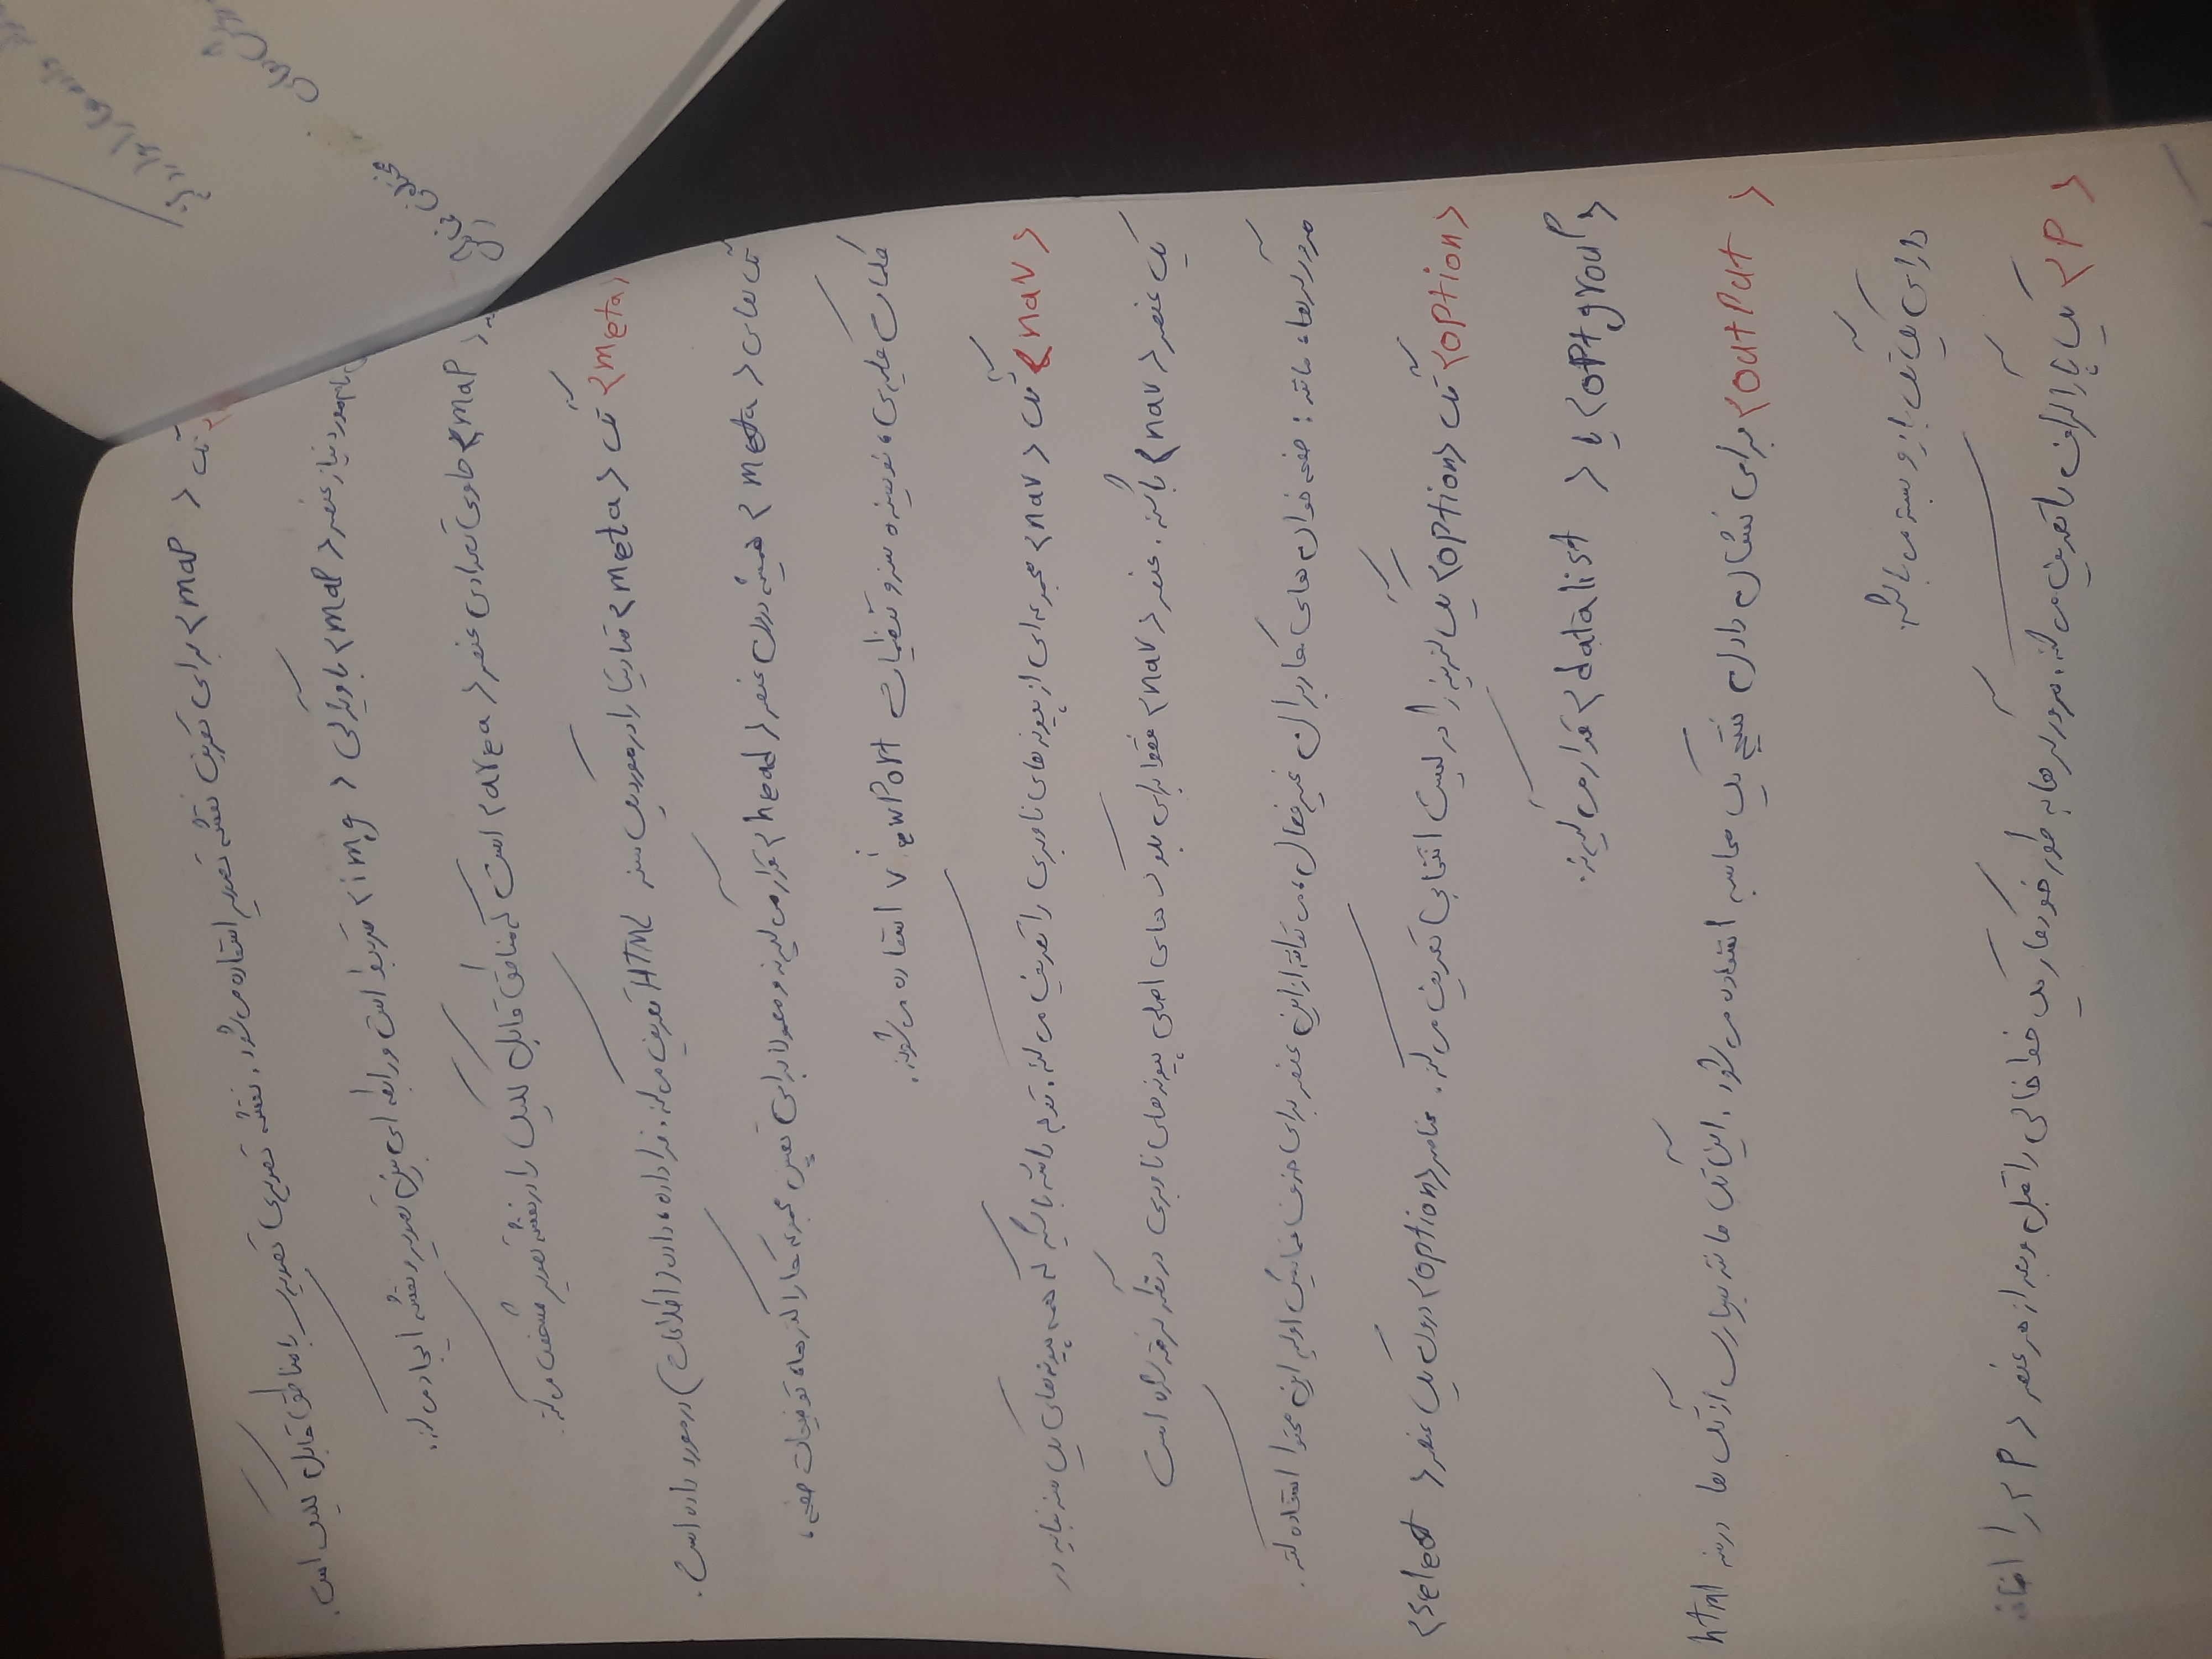 تگ <map> برای تعریف نقشه تصویر استفاده می‌شود. نقشه تصویری تصویری با مناطق قابل کلیک است.
نام مورد نیاز عنصر <map> با ویژگی <img> مرتبط است و رابطه ای بین تصویر و نقشه ایجاد می‌کند.
<map> حاوی تعدادی عنصر <area> است که مناطق قابل کلیک را در نقشه تصویر مشخص می‌کند.
<meta> تگ <meta> متادیتا را در مورد یک سند HTML تعریف می‌کند. فرا داده، داده (اطلاعات) در مورد داده است.
تگ های <meta> همیشه درون عنصر <head> قرار می‌گیرند و معمولا برای تعیین مجموعه کاراکترها، توضیحات صفحه،
کلمات کلیدی، نویسنده سند و تنظیمات viewPort استفاده می‌شوند.
<nav> تگ <nav> مجموعه ای از پیوندهای ناوبری را تعریف می‌کند. توجه داشته باشید که همه پیوندهای یک سند نباید در
یک عنصر <nav> باشند. عنصر <nav> فقط برای بلوک های اصلی پیوندهای ناوبری در نظر گرفته شده است
مرورگرها، مانند: صفحه خوان های کاربران غیرفعال، می‌توانند از این عنصر برای حذف نمایش اولیه این محتوا استفاده کنند.
<option> تگ <option> یک گزینه را در لیست انتخابی تعریف می‌کند. عناصر <option> درون یک عنصر <select>
<optgroup> یا <datalist> قرار می‌گیرند.
<output> برای نشان دادن نتیجه یک محاسبه استفاده می‌شود. این تگ مانند بسیاری از تگ ها در سند html
دارای یک تگ باز و بسته می‌باشد.
<p> یک پاراگراف را تعریف می‌کند. مرورگرها به طور خودکار یک خط خالی را قبل و بعد از هر عنصر <p> را اضافه
داده ها را وارد کنند
روش های
مختلفی نمایش